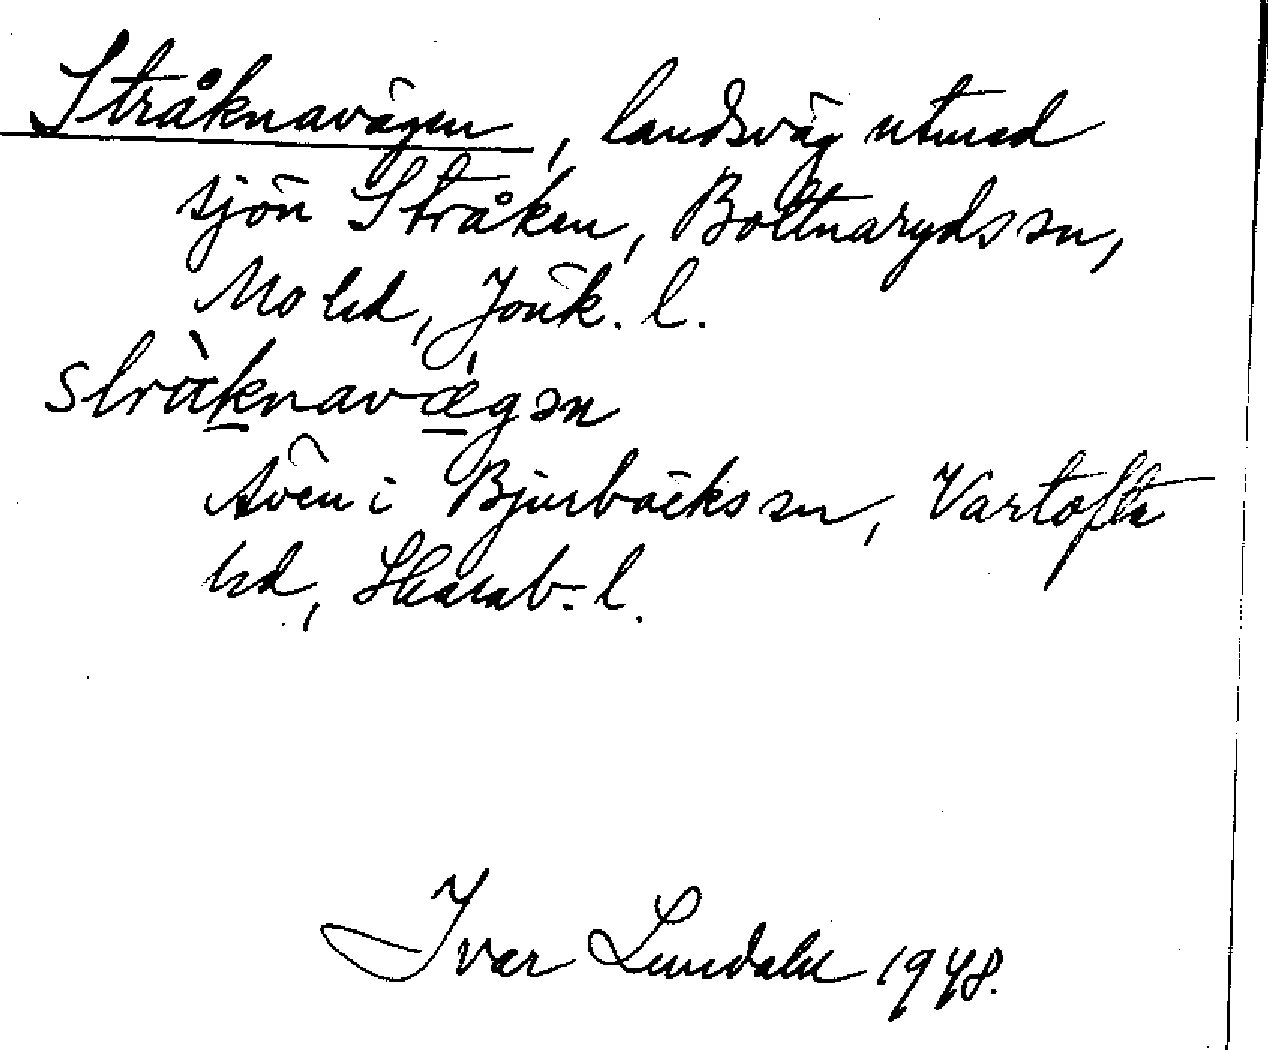 Stråknavägen, landsväg utmed
sjön Stråken, Bottnaryds sn,
Mo hd, Jönk. l.
stràknavǽgən
Även i Bjurbäcks sn, Vartofta
hd, Skarab. l.
Ivar Lundahl 1948.